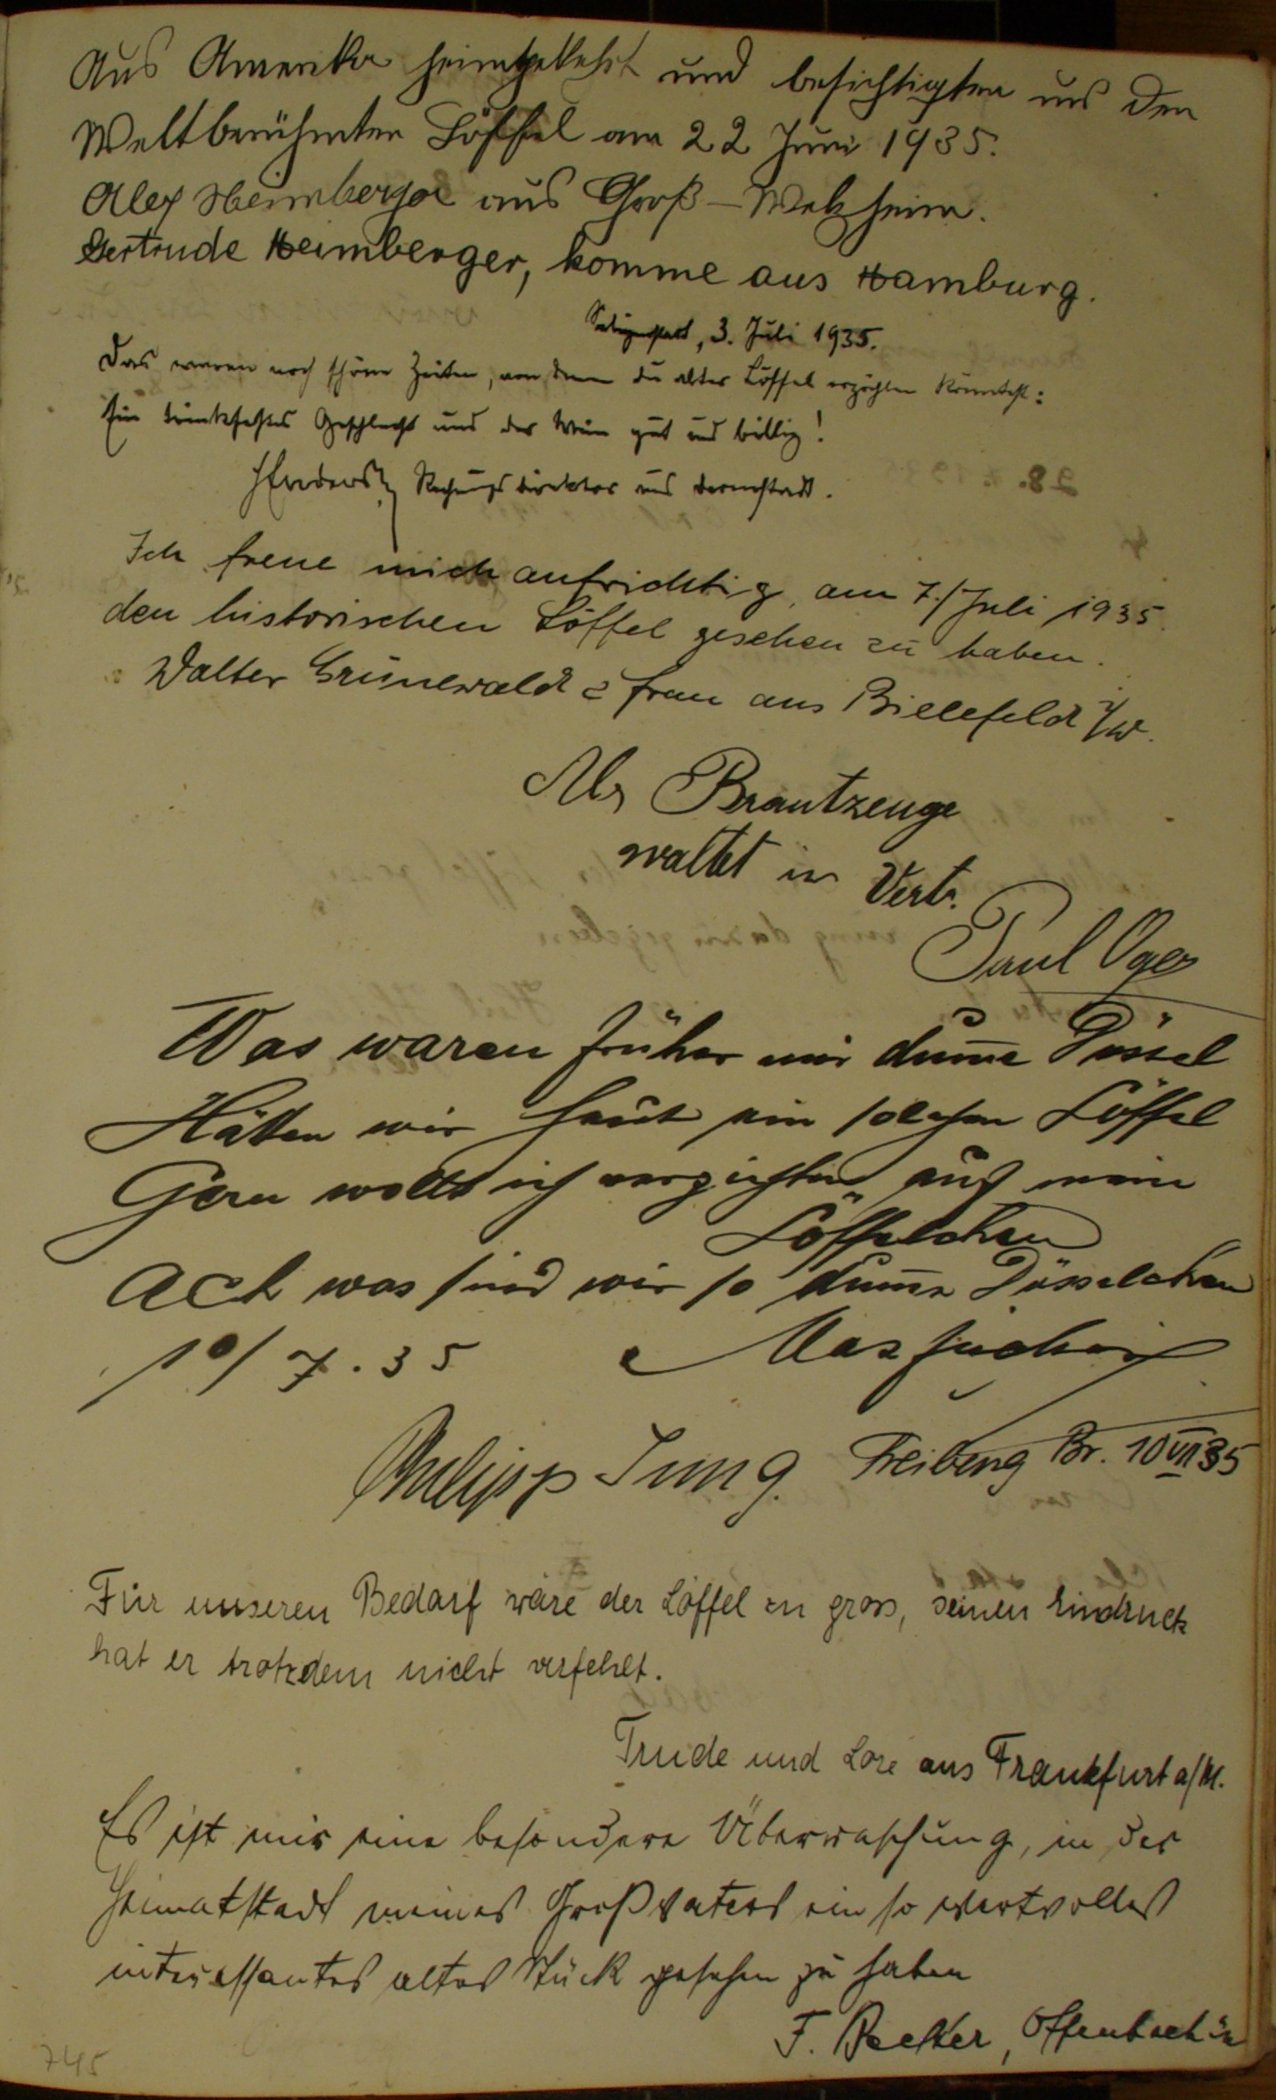 Aus Amerika heimgekehrt und besichtigten uns den
Weltberühmten Löffel am 22 Juni 1935.
Alex Heimberger aus Groß-Welzheim.
Gertrude Heimberger, komme aus Hamburg.
Seligenstadt, 3. Juli 1935.
Das waren noch schöne Zeiten, von denen du alter Löffel erzählen könntest:
Ein trinkfestes Geschlecht und der Wein gut und billig!
HEnders, Rechnungsdirektor aus Darmstadt.
Ich freue mich aufrichtig, am 7./Juli 1935
den historischen Löffel gesehen zu haben.
Walter Grünewald & Frau aus Bielefeld i/W.
Als Brautzeuge
waltet in Vert.
Paul Oger
Was waren früher wir dum̄e Dössel
Hätten wir heut ein solchen Löffel
Gern wollt ich verzichten auf mein
Löffelchen
Ach was sind wir so dum̄e Dösselchen
10/7.35 Max
Philipp Jung. Freiberg Br. 10 VII 35
Für unseren Bedarf wäre der Löffel zu gross, seinen Eindruck
hat er trotzdem nicht verfehlt.
Trude und Lore aus Frankfurt a/M.
Es ist mir eine besondere Überraschung, in der
Heimatstadt meines Großvaters ein so wertvolles
interessantes altes Stück gesehen zu haben
F. Becker, Offenbach
745